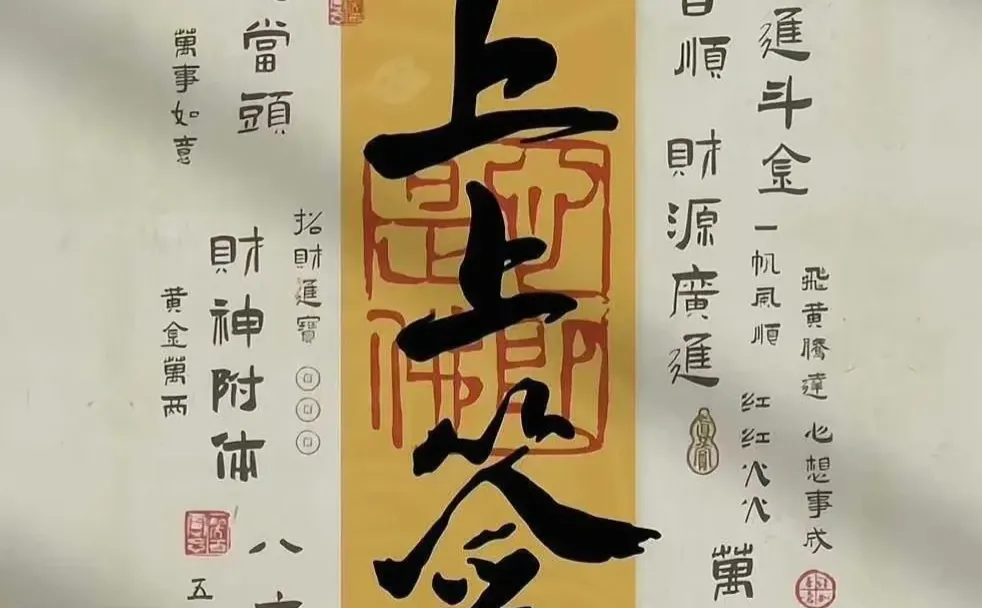 飛黄騰達
心想事成
進斗金
一帆風順
紅紅火火
萬
順
財源廣進
上上签
心即是佛
招財進寶
當頭
財神附体
八
萬事如意
黄金萬两
五